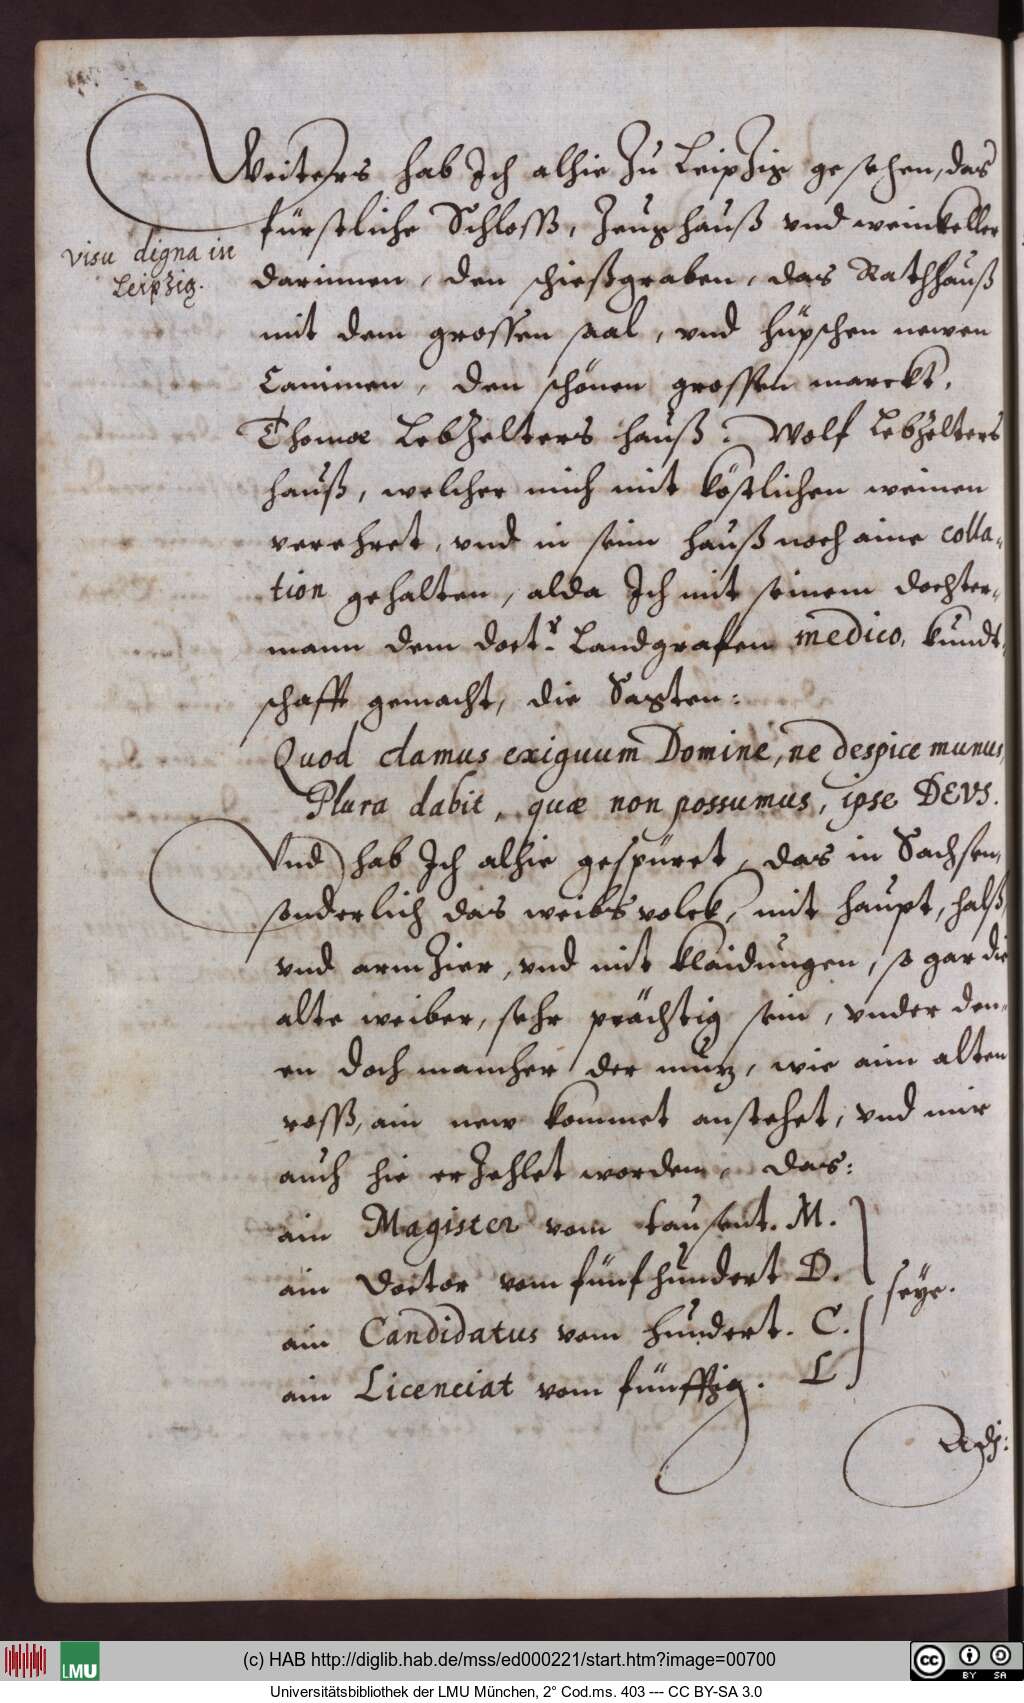 Weiters hab Ich alhie zu Leipzig gesehen, das
fürstliche Schloss, Zeughauß vnd weinkeller
visu digna in
Leipzig.
darinnen, den schießgraben, das Rathhauß
mit dem grossen saal, vnd hüpschen newen
Caminen, den schönen grossen marckt.
Thomæ Lebzelters hauß: Wolf Lebzelters
hauß, welcher mich mit köstlichen weinen
verehret, vnd in seim hauß noch aine colla-
tion gehalten, alda Ich mit seinem dochter-
mann dem doct.r Landgrafen medico, kundt-
schafft gemacht, die sagten:
Quod damus exiguum Domine, ne despice munus,
Plura dabit, quæ non possumus, ipse DEVS.
Vnd hab Ich alhie gespüret, das in Sachsen,
sonderlich das weibsvolck, mit haupt, halß,
vnd arm zier, vnd mit klaidungen, so gar die
alte weiber, sehr prächtig sein, vnder den-
en doch mancher der mutz, wie aim alten
ross, ain new kommet anstehet, vnd mir
auch hie erzehlet worden, das:
ain Magister vom tausent. M.
ain Doctor vom fünfhundert D.
seye.
ain Candidatus vom hundert. C.
ain Licenciat vom fünffzig. L
Adj:
(c) HAB http://diglib.hab.de/mss/ed000221/start.htm?image=00700
LMU
cc BY SA
Universitätsbibliothek der LMU München, 2° Cod.ms. 403 --- CC BY-SA 3.0